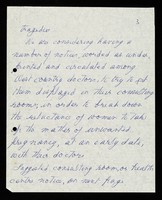 1
Together
We are considering having a
number of notices, worded as under,
printed and circulated among
West country doctors. to try to get
them displayed in their consulting
rooms, in order to break down
the reluctance of women to talk
of the matter of unwanted
pregnancy, at an early date,
with their doctors.
Suggested consulting room, or health
centre notice, on next page.